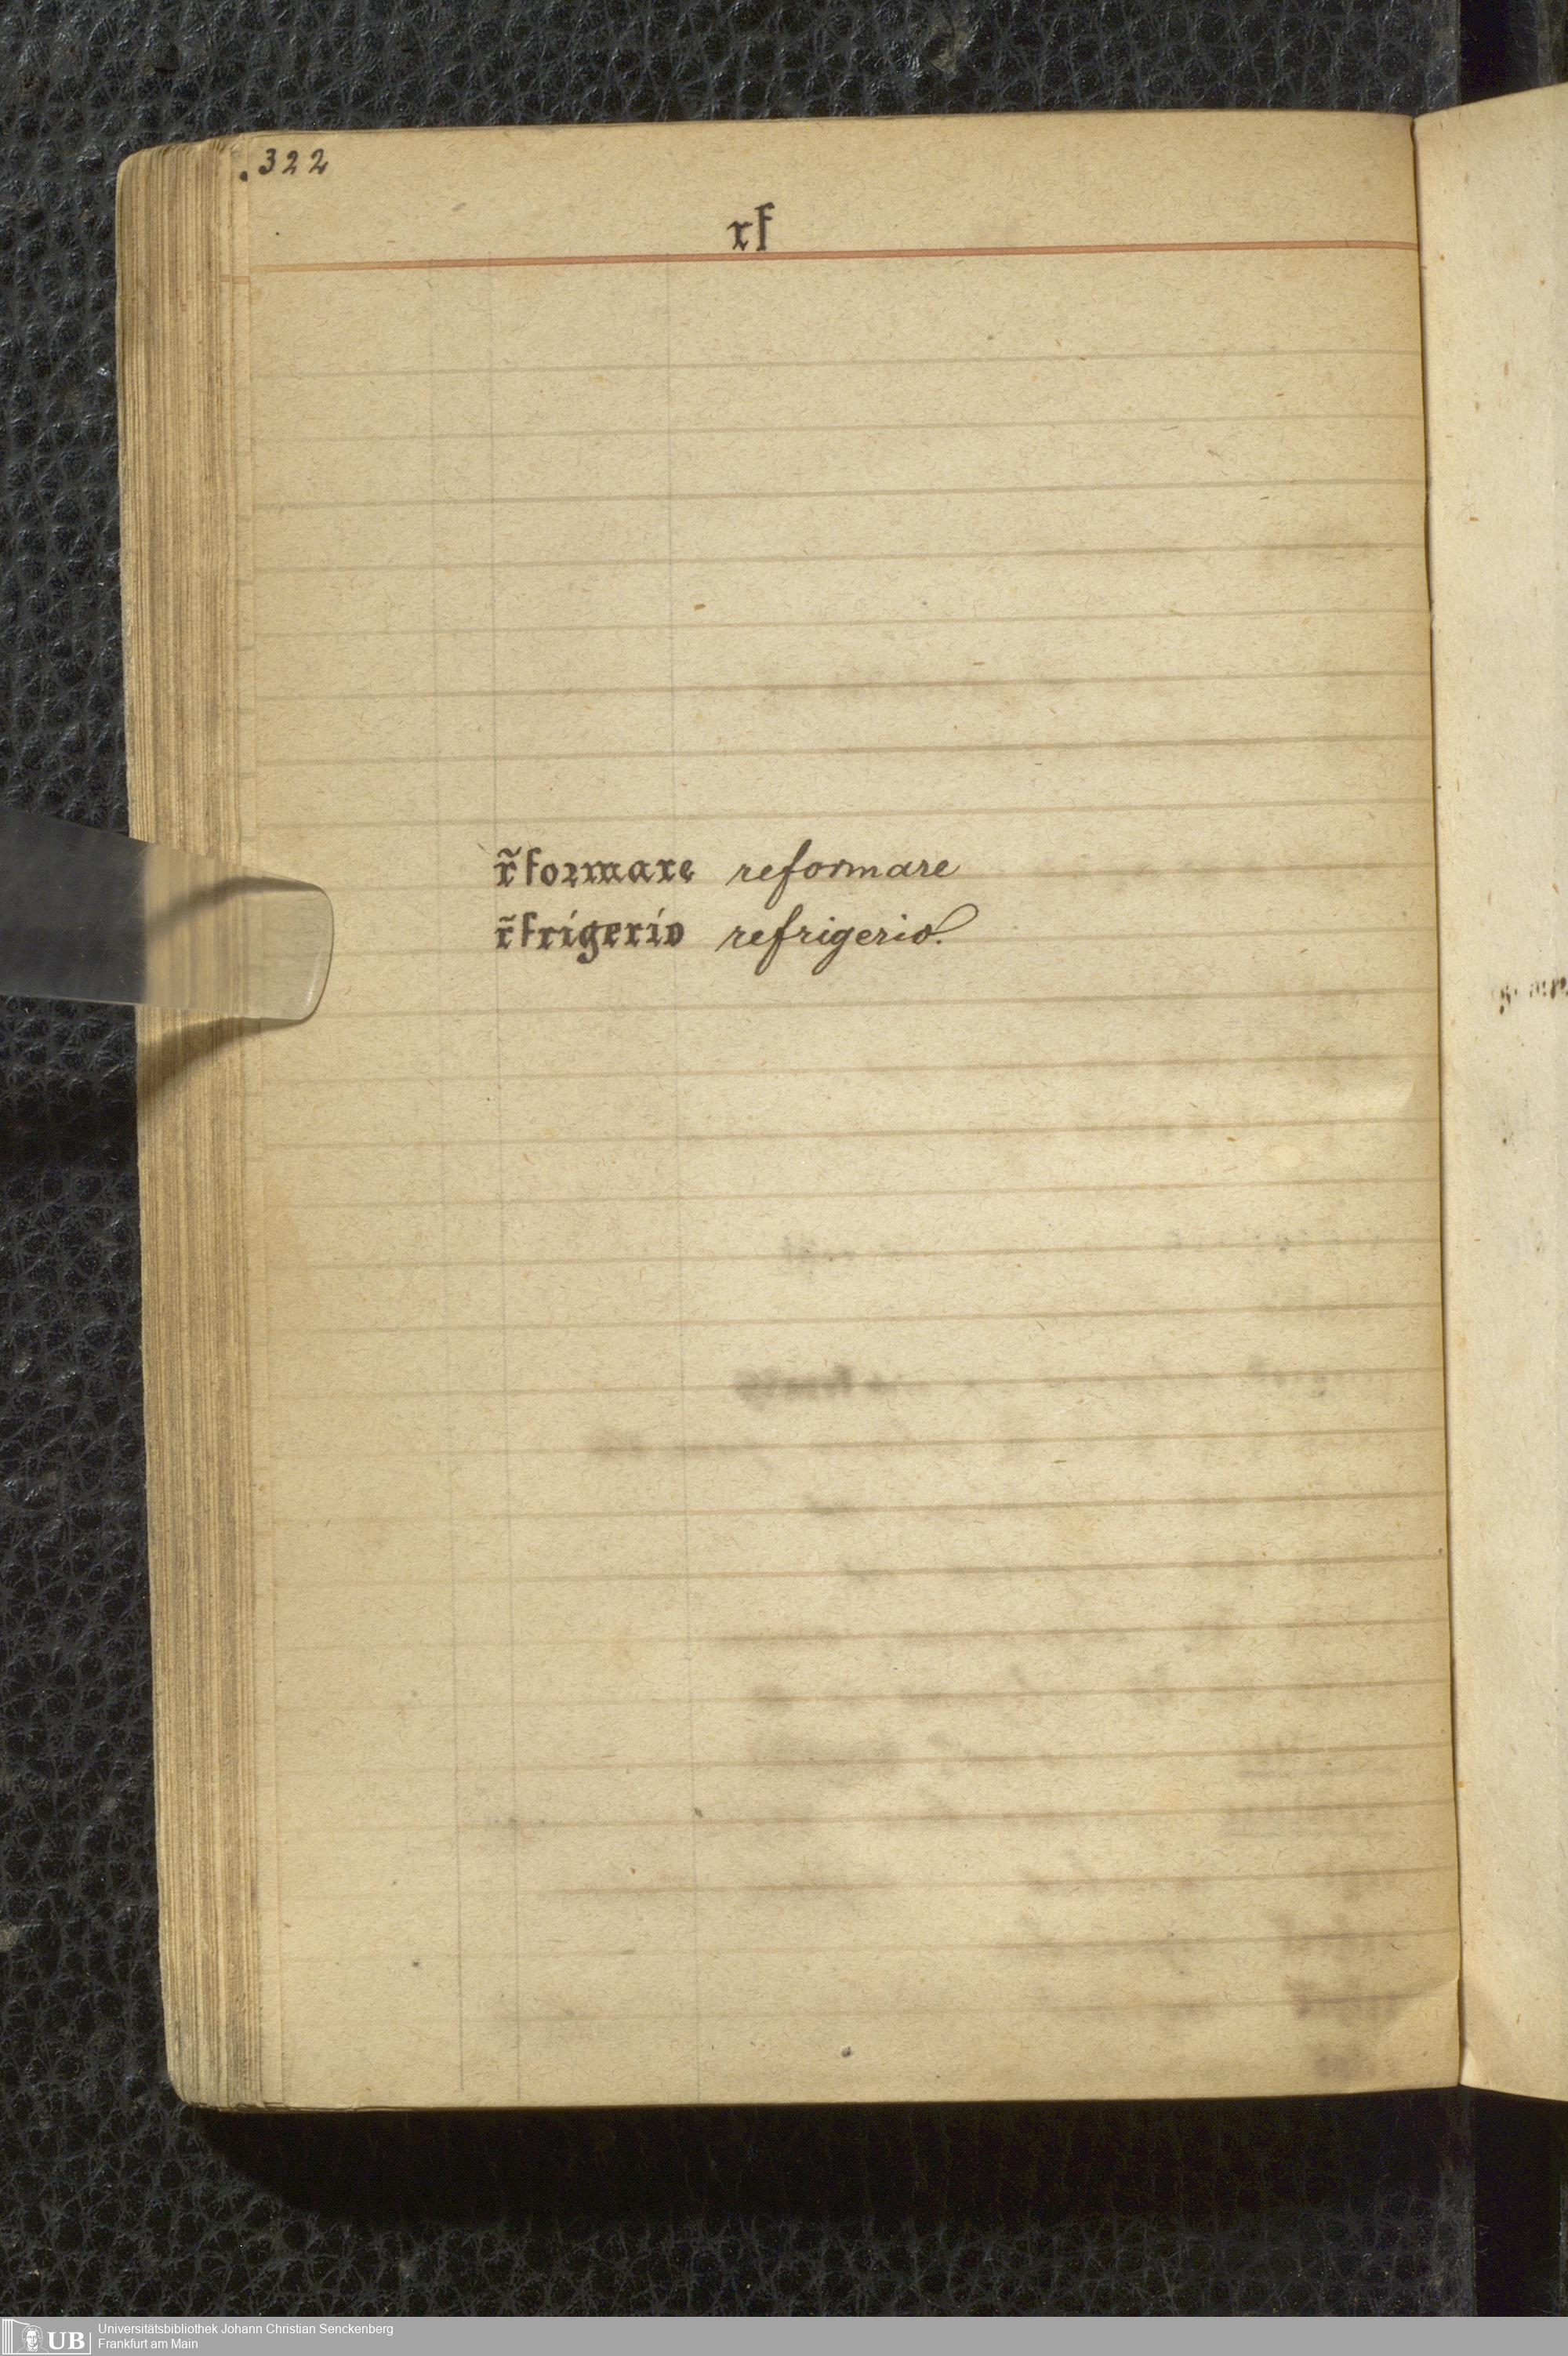 .322
rf
r̃formare reformare
r̃frigerio refrigerio.
UB
Universitätsbibliothek Johann Christian Senckenberg
Frankfurt am Main